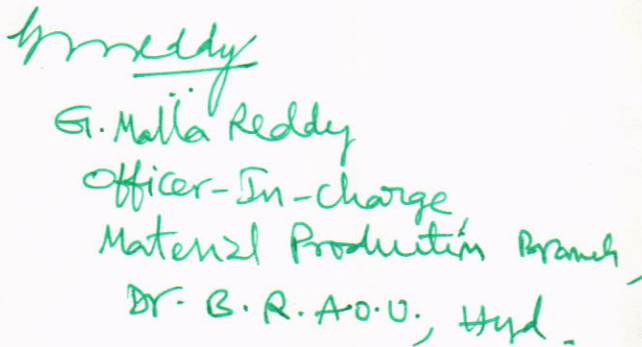 G. Malla Reddy
Officer-In-charge,
Material Production Branch,
Dr. B.R.A.O.U., Hyd.